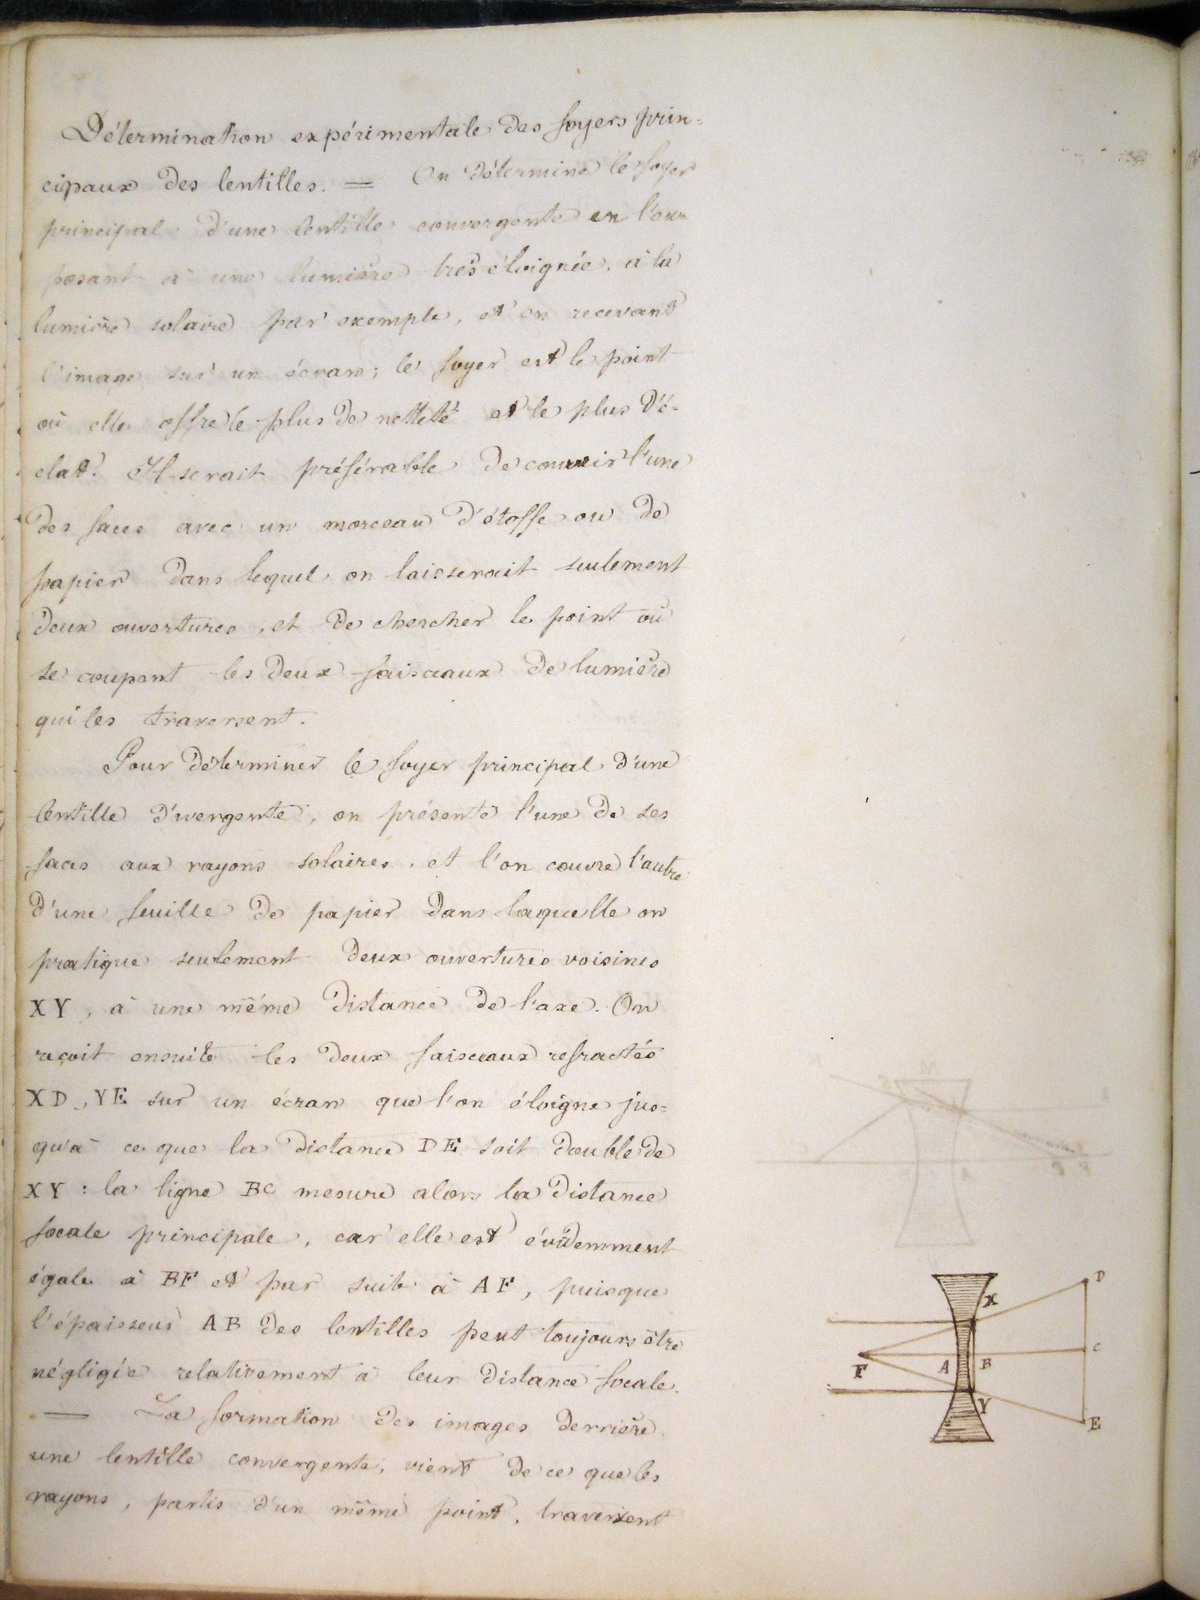 Détermination expérimentale des foyers prin=
cipaux des lentilles. — On détermine le foyer
principal d'une lentille convergente en l'ex=
posant à une lumière très éloignée, à la
lumière solaire par exemple, et en recevant
l'image sur un écran; le foyer est le point
où elle offre le plus de netteté et le plus d'é-
clat. Il serait préférable de couvrir l'une
des faces avec un morceau d'étoffe ou de
papier dans lequel on laisserait seulement
deux ouvertures, et de chercher le point où
se coupent les deux faisceaux de lumière
qui les traversent.
Pour déterminer le foyer principal d'une
lentille divergente, on présente l'une de ses
faces aux rayons solaires, et l'on couvre l'autre
d'une feuille de papier dans laquelle on
pratique seulement deux ouvertures voisines
XY, à une même distance de l'axe. On
reçoit ensuite les deux faisceaux refractés
XD, YE sur un écran que l'on éloigne jus=
qu'à ce que la distance DE soit double de
XY : la ligne BC mesure alors la distance
focale principale, car elle est évidemment
égale à BF et par suite à AF, puisque
l'épaisseur AB des lentilles peut toujours être
négligée relativement à leur distance focale.
— La formation des images derrière
une lentille convergente, vient de ce que les
rayons, partis d'un même point, traversent
D
X
F
A
B
C
Y
E